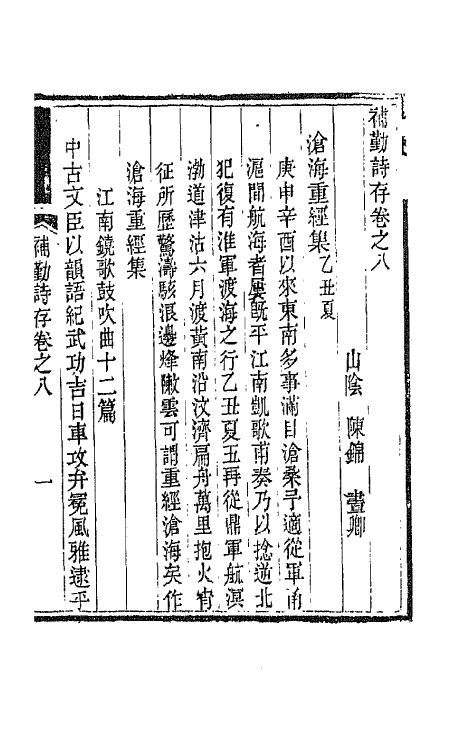 補勤詩存卷之八
山陰　陳錦　晝卿
滄海重經集乙丑夏
庚申辛酉以來東南多事滿目滄桑予適從軍甬
滬間航海者屢旣平江南凱歌甫奏乃以捻逆北
犯復有淮軍渡海之行乙丑夏五再從鼎軍航溟
渤道津沽六月渡黃南沿汶濟扁舟萬里抱火宵
征所歷驚濤駭浪邊烽敵雲可謂重經滄海矣作
滄海重經集
江南鐃歌鼓吹曲十二篇
中古文臣以韻語紀武功吉日車攻弁冕風雅逮乎
補勤詩存卷之八
一